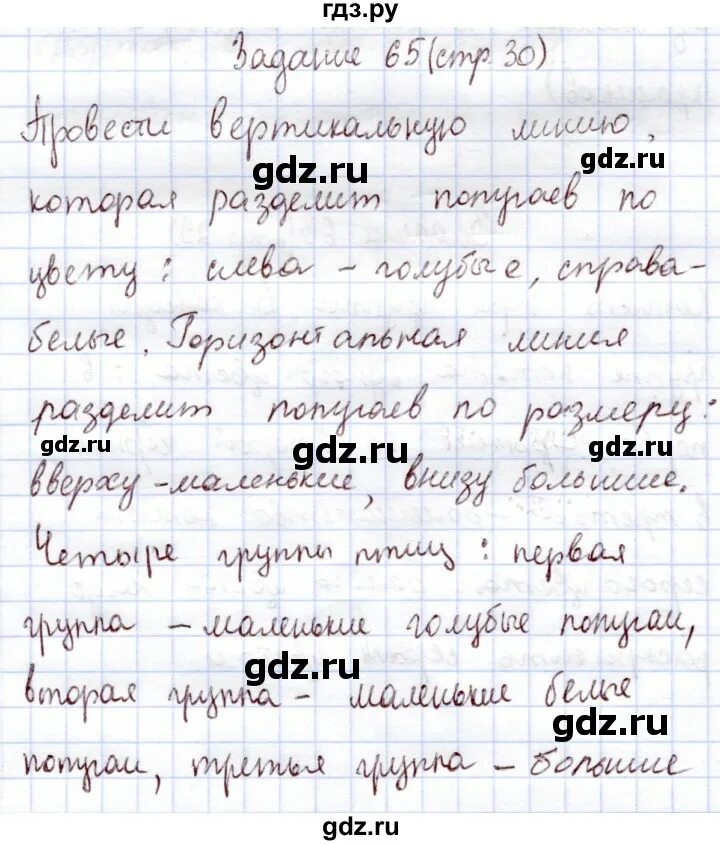 гдз.ру
Задание 65 (стр. 30)
Провести вертикальную линию,
gdz.ru
gdz.ru
которая разделит попугаев по
цвету : слева - голубые, справа-
белые. Горизонтальная линия
разделит попугаев по размеру:
gdz.ru
gdz.ru
gdz.ru
вверху - маленькие, внизу большие.
Четыре группы птиц : первая
группа - маленькие голубые попугаи,
gdz.ru
вторая группа - маленькие белые
gdz.ru
попугаи, третья группа - большие
gdz.ru